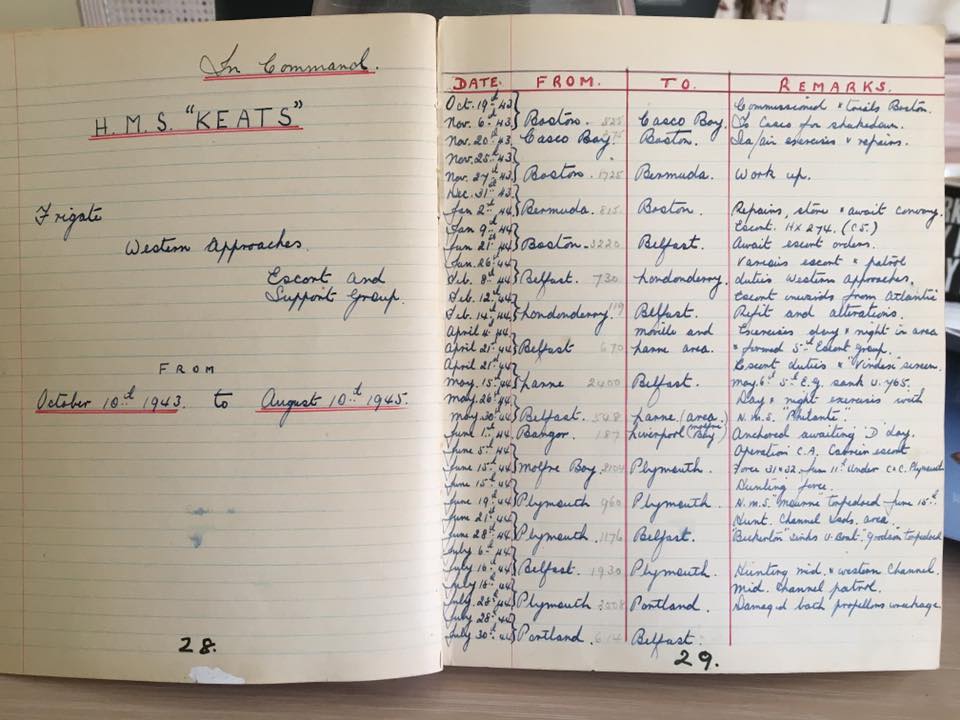 In Command.
H.M.S. "KEATS"
Frigate
Western Approaches.
Escort and
Support Group.
FROM
October 10th 1943. to August 10th 1945.
28.
DATE. FROM. TO. REMARKS.
Oct. 19th 43 Commissioned & trials Boston.
Nov. 6th 43 Boston. 525 Casco Bay. To Casco for shakedown.
Nov. 20th 43 Casco Bay Boston. Sea/air exercises & repairs.
Nov. 25th 43
Nov. 27th 43 Boston. 1725 Bermuda. Work up.
Dec. 31st 43
Jan 2nd 44 Bermuda. 815 Boston. Repairs, store & await convoy.
Jan 9th 44 Escort. HX 274. (C5.)
Jan 21st 44 Boston. 3220 Belfast. Await escort orders.
Jan. 26th 44 Various escort & patrol
Feb. 8th 44 Belfast. 730 Londonderry. duties Western Approaches.
Feb. 12th 44 Escort inwards from Atlantic
Feb. 14th 44 Londonderry 119 Belfast. Refit and alterations.
April 4th 44 Moville and Exercises day & night in area
April 21st 44 Belfast 670 Larne area. & formed 5th Escort group.
April 21st 44 Escort duties & "Vindex" screen.
May. 15th 44 Larne 2400 Belfast. May 6th 5th E.G. sank U.765.
May 26th 44 Day & night exercises with
May 30th 44 Belfast. 548 Larne (area.) H.M.S. "Philante".
June 1st 44 Bangor. 187 Liverpool (Moelfre Bay) Anchored awaiting 'D' day.
June 5th 44 Operation C.A. escort
June 15th 44 Molfre Bay 2104 Plymouth. Force 31 & 32. Jun 11th Under C in C. Plymouth
June 15th 44 Hunting force.
June 19th 44 Plymouth 960 Plymouth. H.M.S. "Mourne" torpedoed June 15th.
June 21st 44 Hunt. Channel area.
June 28th 44 Plymouth. 1176 Belfast. "Bickerton" sinks U-Boat. Goodson torpedoed
July 6th 44
July 16th 44 Belfast. 1930 Plymouth. Hunting mid. & western Channel.
July 18th 44 Mid. Channel patrol.
July 28th 44 Plymouth Portland. Damaged both propellers wreckage.
July 28th 44
July 30th 44 Portland. 614 Belfast.
29.